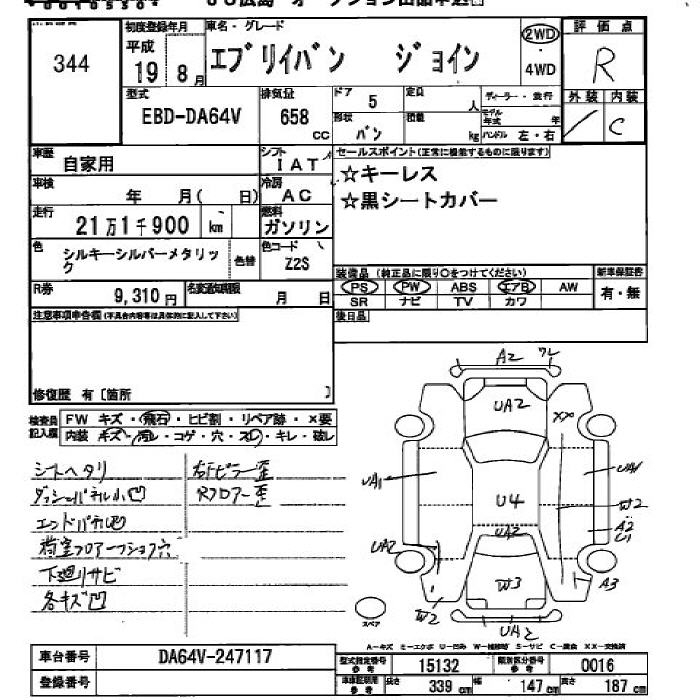 344
初度登録年月
車名・グレード
平成
19 8月
エブリイバン ジョイン
2WD
・
4WD
評価点
R
外装 内装
/ C
型式
EBD-DA64V
排気量
658
cc
ドア
5
定員
人
形状
バン
積載
kg
ディーラー・並行
モデル
年式
年
ハンドル 左・右
車歴
自家用
シフト
IAT
車検
年 月( 日)
冷房
AC
走行
21万1千900 km
燃料
ガソリン
色
シルキーシルバーメタリック
色替
色コード
Z2S
R券
9,310円
名変通知期限
月 日
セールスポイント(正常に機能するものに限ります)
☆キーレス
☆黒シートカバー
装備品(純正品に限り○をつけてください)
PS PW ABS エアB AW
SR ナビ TV カワ
新車保証書
有・無
後日品
注意事項申告欄(不具合内容等は具体的に記入して下さい)
修復歴 有〔箇所 〕
検査員
記入欄
FW キズ・飛石・ヒビ割・リペア跡・×要
内装 キズ・汚れ・コゲ・穴・スレ・キレ・破レ
シートヘタリ
ダッシュパネル小凹
エンドパネル凹
荷室フロアープッシュ穴
下廻リサビ
各キズ凹
右Fピラー歪
Rフロアー歪
A2 ワレ
UA2
XX
UA1
U4
UA1
W2
A2
U1
UA2
UA2
W3
W2
A3
UA2
スペア
A-キズ E-エクボ U-凹み W-補修跡 S-サビ C-腐食 XX-交換済
車台番号
DA64V-247117
登録番号
型式指定番号
参考
15132
類別区分番号
参考
0016
車検証記載
参考
長さ
339 cm
幅
147 cm
高さ
187 cm